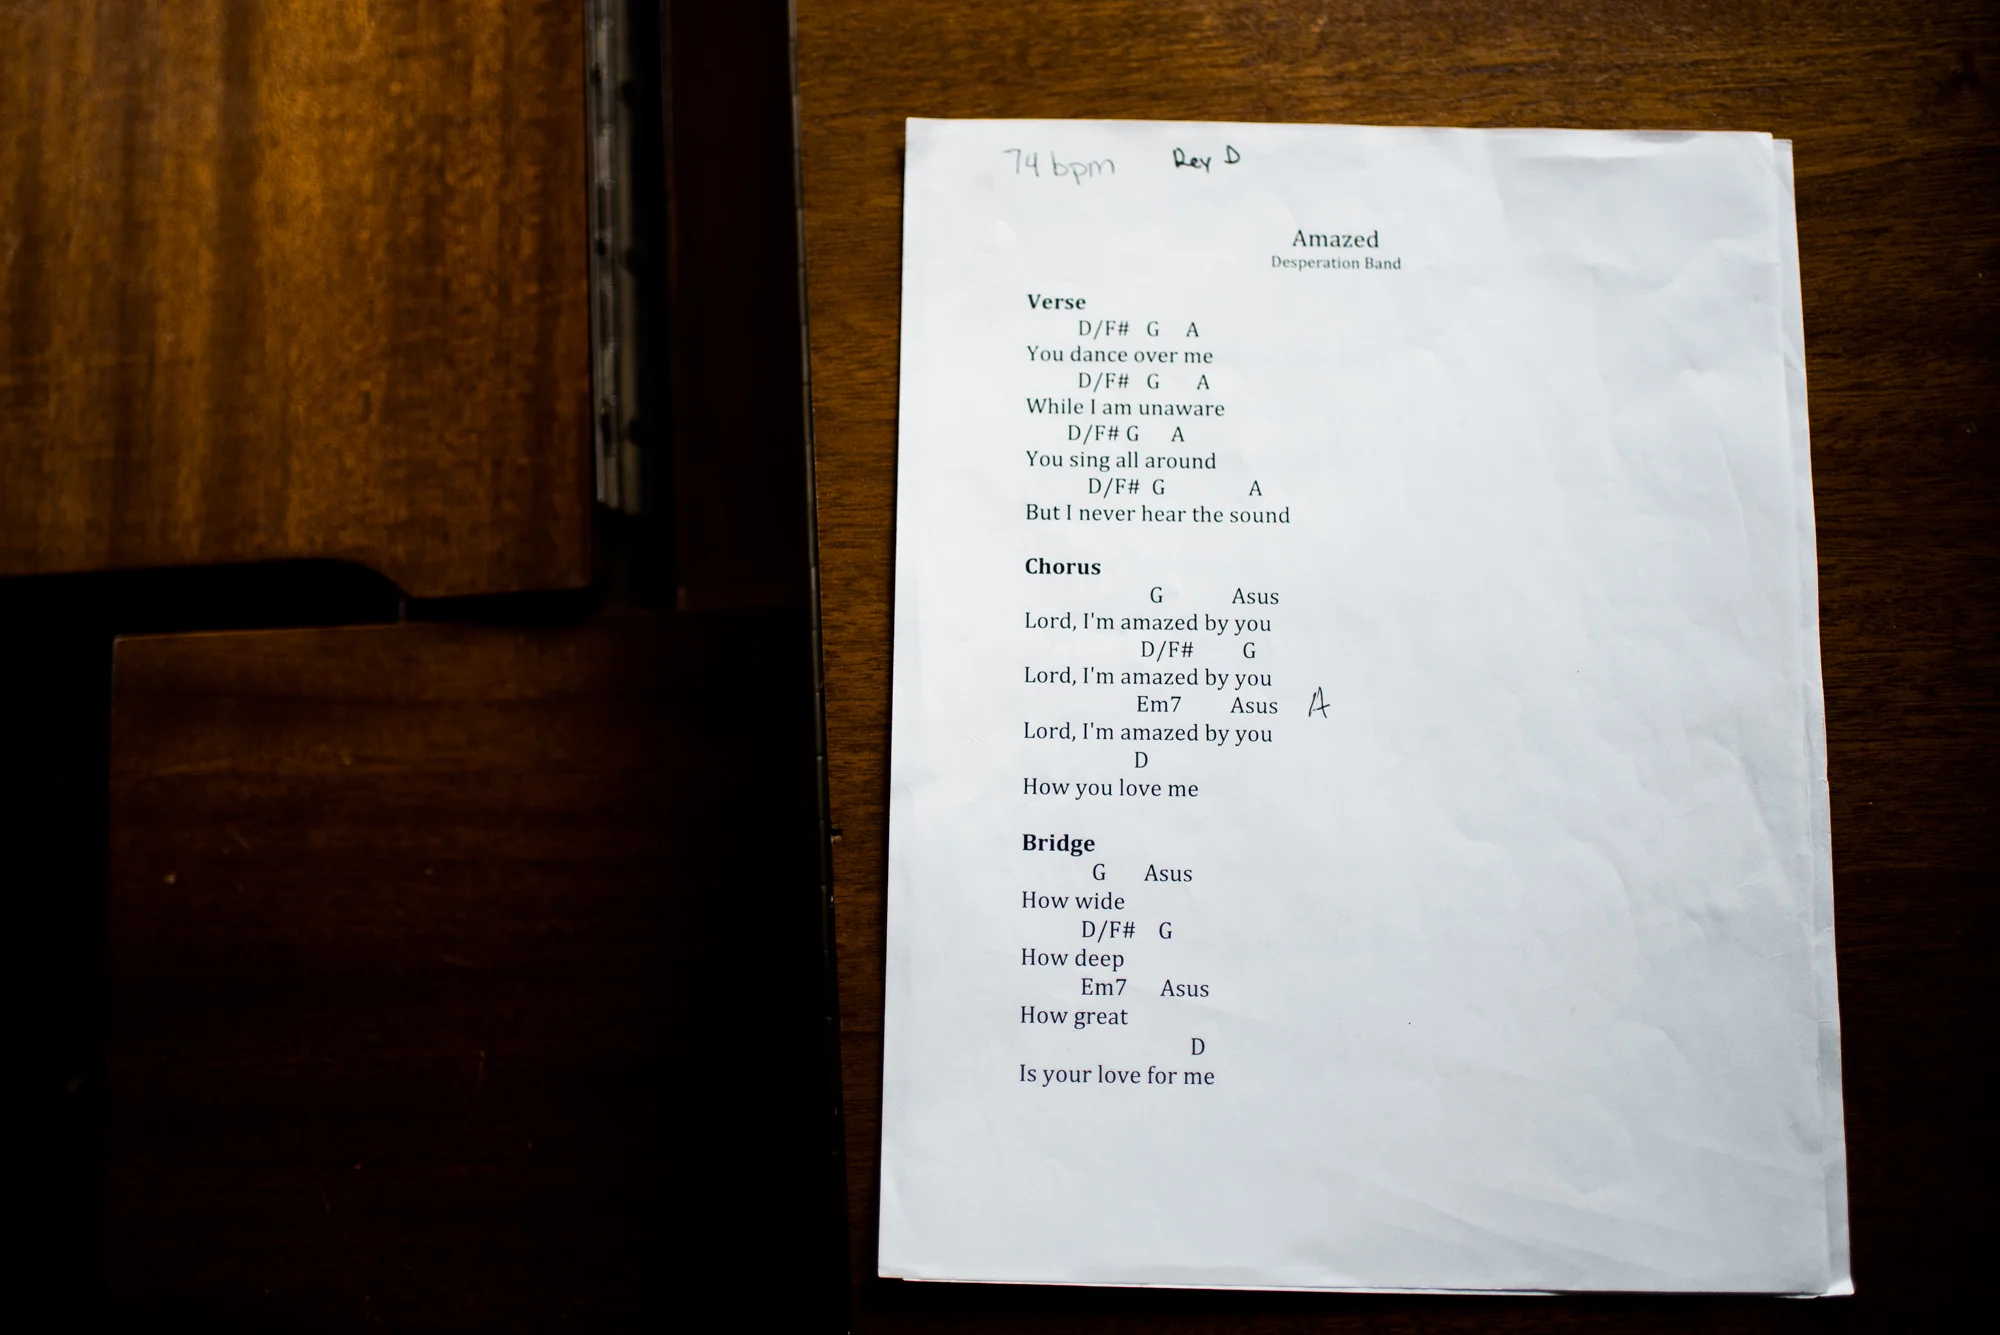 74 bpm Key D
Amazed
Desperation Band
Verse
D/F# G A
You dance over me
D/F# G A
While I am unaware
D/F# G A
You sing all around
D/F# G A
But I never hear the sound
Chorus
G Asus
Lord, I'm amazed by you
D/F# G
Lord, I'm amazed by you
Em7 Asus A
Lord, I'm amazed by you
D
How you love me
Bridge
G Asus
How wide
D/F# G
How deep
Em7 Asus
How great
D
Is your love for me